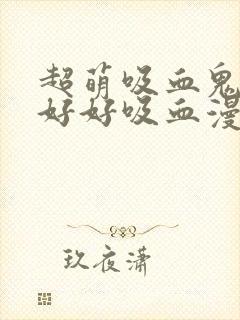 超萌吸血鬼
好好吸血漫
玖夜潇